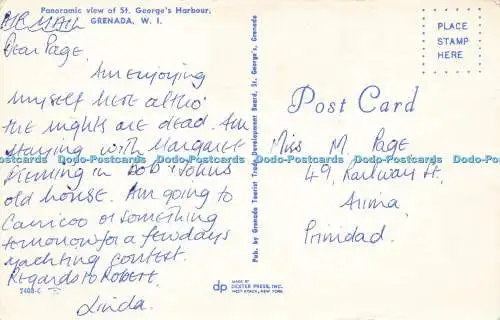 Panoramic view of St. George's Harbour,
GRENADA, W. I.
AIR MAIL
Dear Page,
Am enjoying
myself here altho'
the nights are dead. Am
staying with Margaret
in Bob + John's
old house. Am going to
or something
tomorrow for a few days
yachting contest.
Regards to Robert.
Linda.
2408-C
Pub. by Grenada Tourist Trade Development Board, St. George's, Grenada
MADE BY
dp DEXTER PRESS, INC.
WEST NYACK, NEW YORK
PLACE
STAMP
HERE
Post Card
Miss M. Page
49, Railway St.
Arima
Trinidad.
Dodo-Postcards Dodo-Postcards Dodo-Postcards Dodo-Postcards Dodo-Postcards Dodo-Postcards